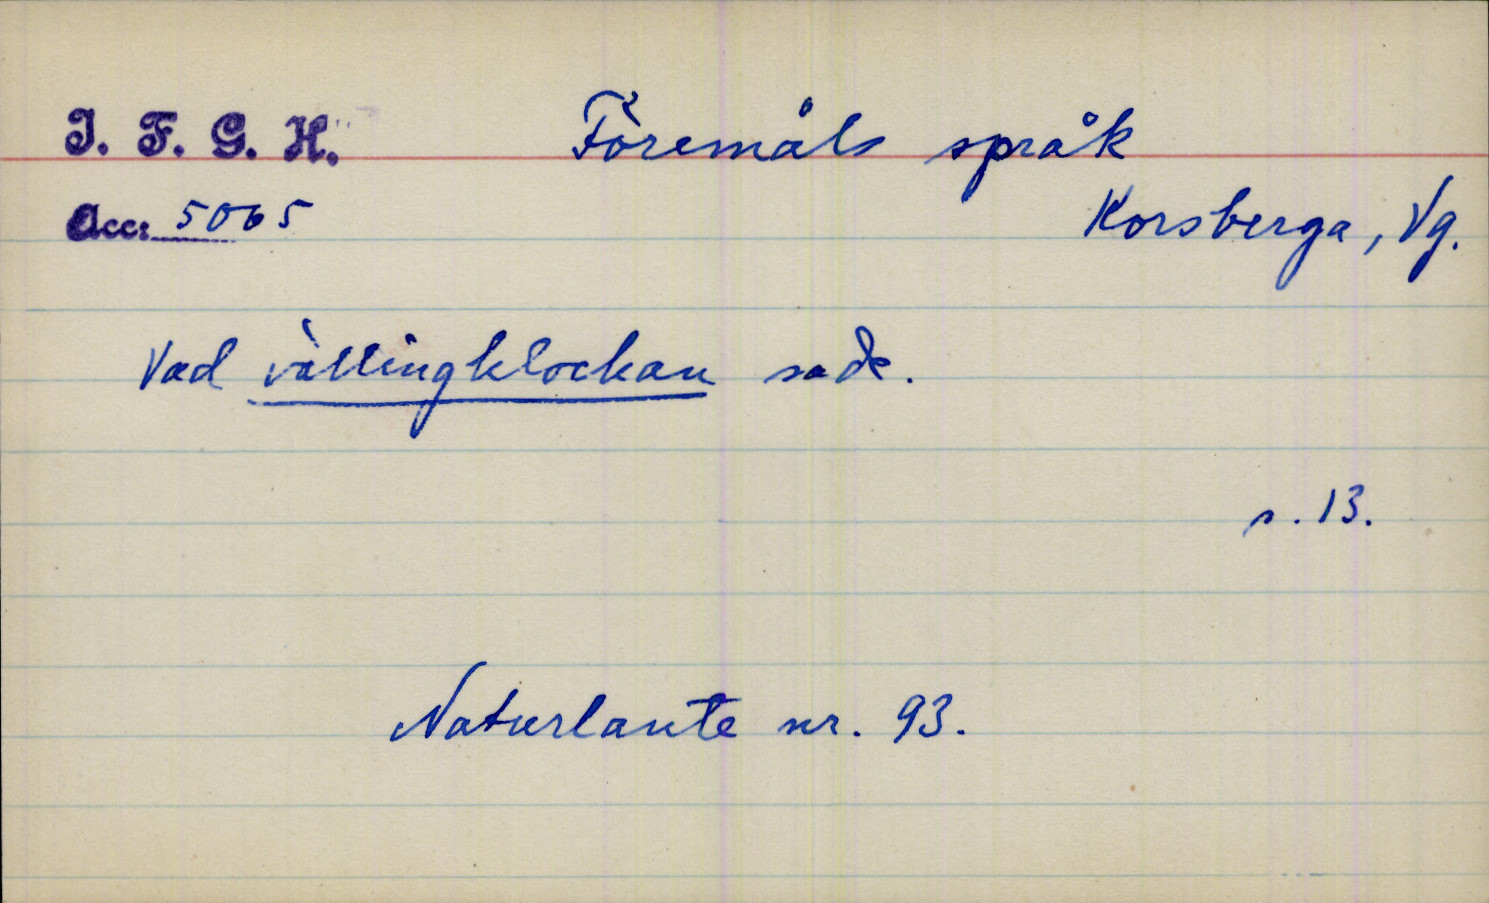 I. F. G. H. Föremåls språk
Acc: 5065 Korsberga, Vg.
Vad vällingklockan sade.
s. 13.
Naturlaute nr. 93.